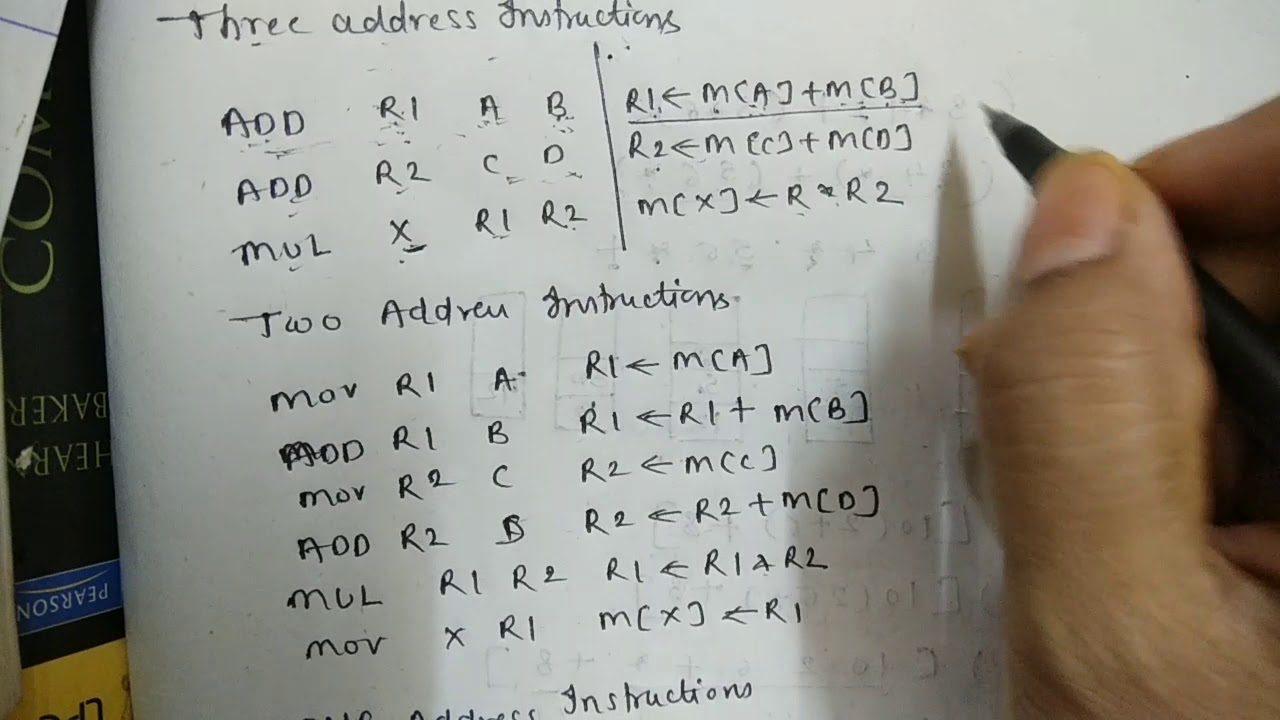 Three address Instructions
ADD R1 A B R1 ← M[A] + M[B]
ADD R2 C D R2 ← M[C] + M[D]
MUL X R1 R2 M[X] ← R * R2
Two Address Instructions
MOV R1 A R1 ← M[A]
ADD R1 B R1 ← R1 + M[B]
MOV R2 C R2 ← M[C]
ADD R2 D R2 ← R2 + M[D]
MUL R1 R2 R1 ← R1 * R2
MOV X R1 M[X] ← R1
Address Instructions
COM
BAKER
HEAR
PEARSON